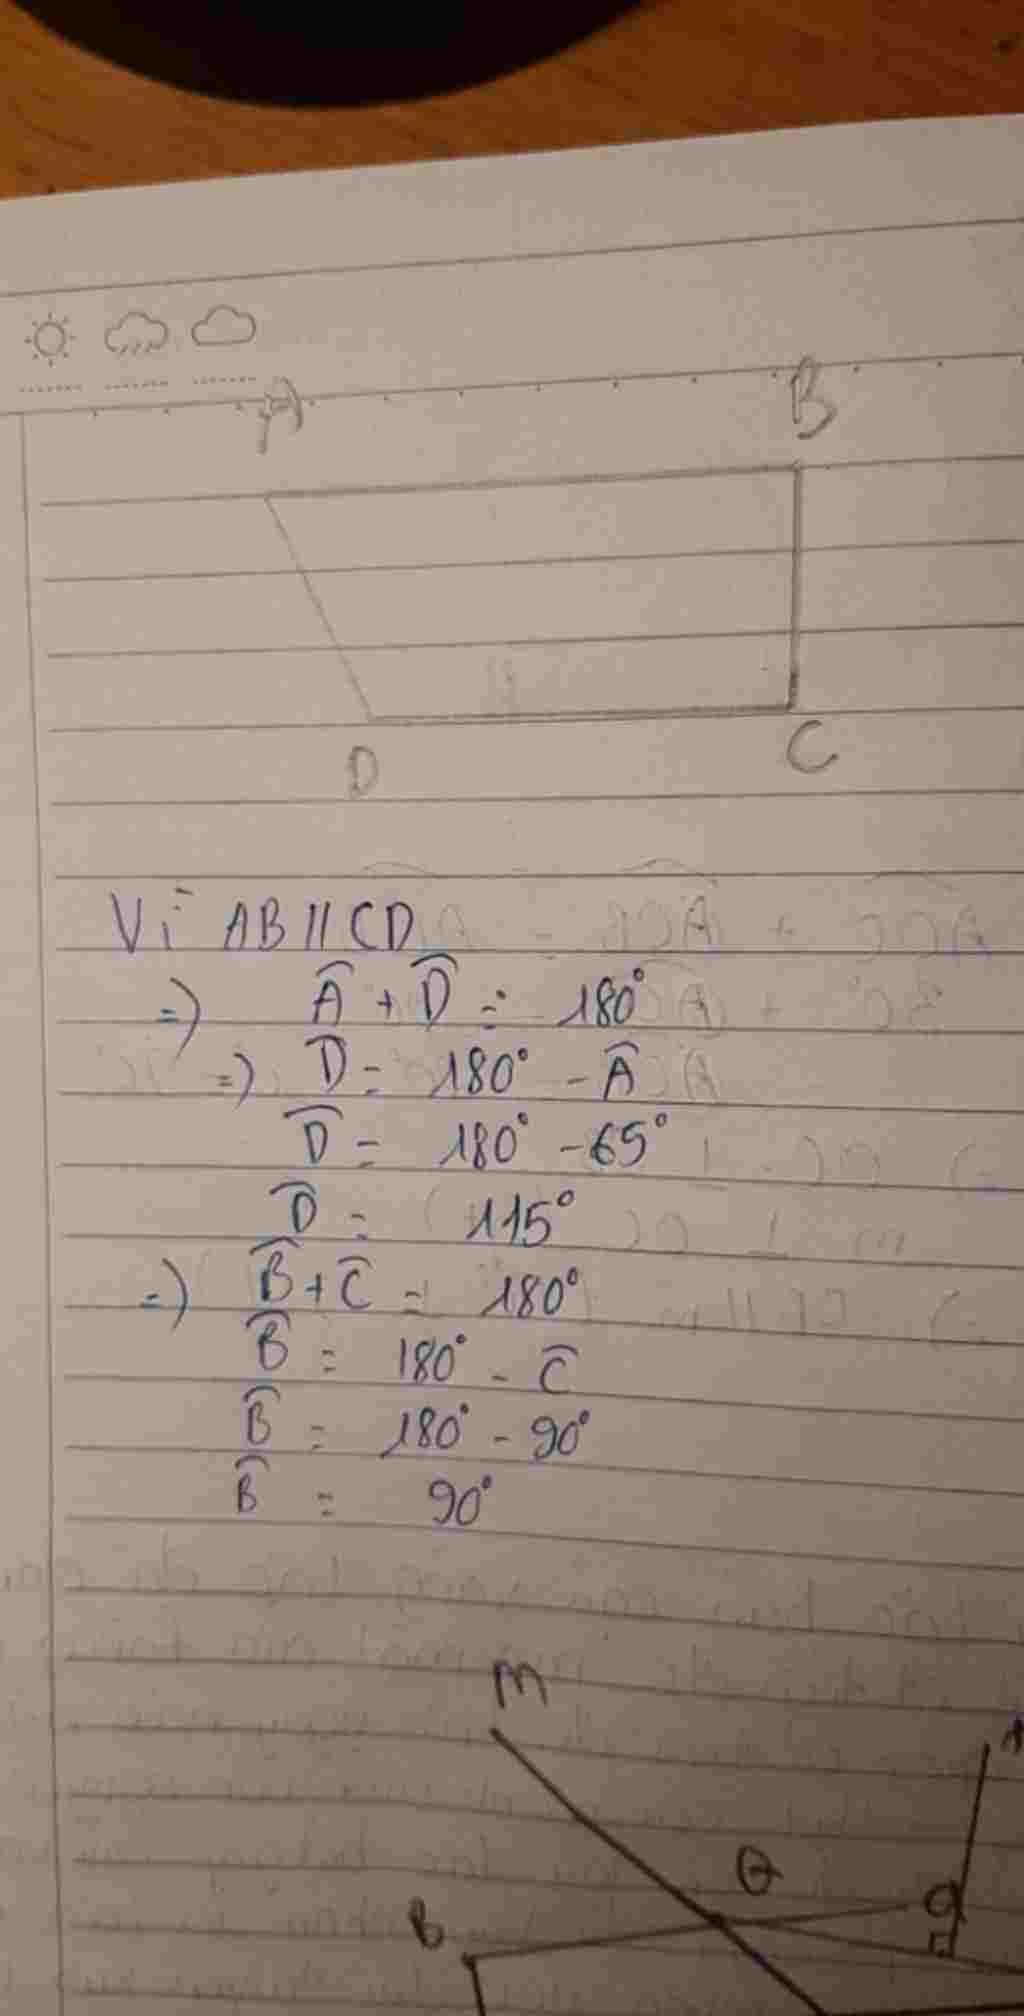 A B
D C
Vì AB // CD
=) Â + D̂ = 180°
=) D̂ = 180° - Â
D̂ = 180° - 65°
D̂ = 115°
=) B̂ + Ĉ = 180°
B̂ = 180° - Ĉ
B̂ = 180° - 90°
B̂ = 90°
M
B